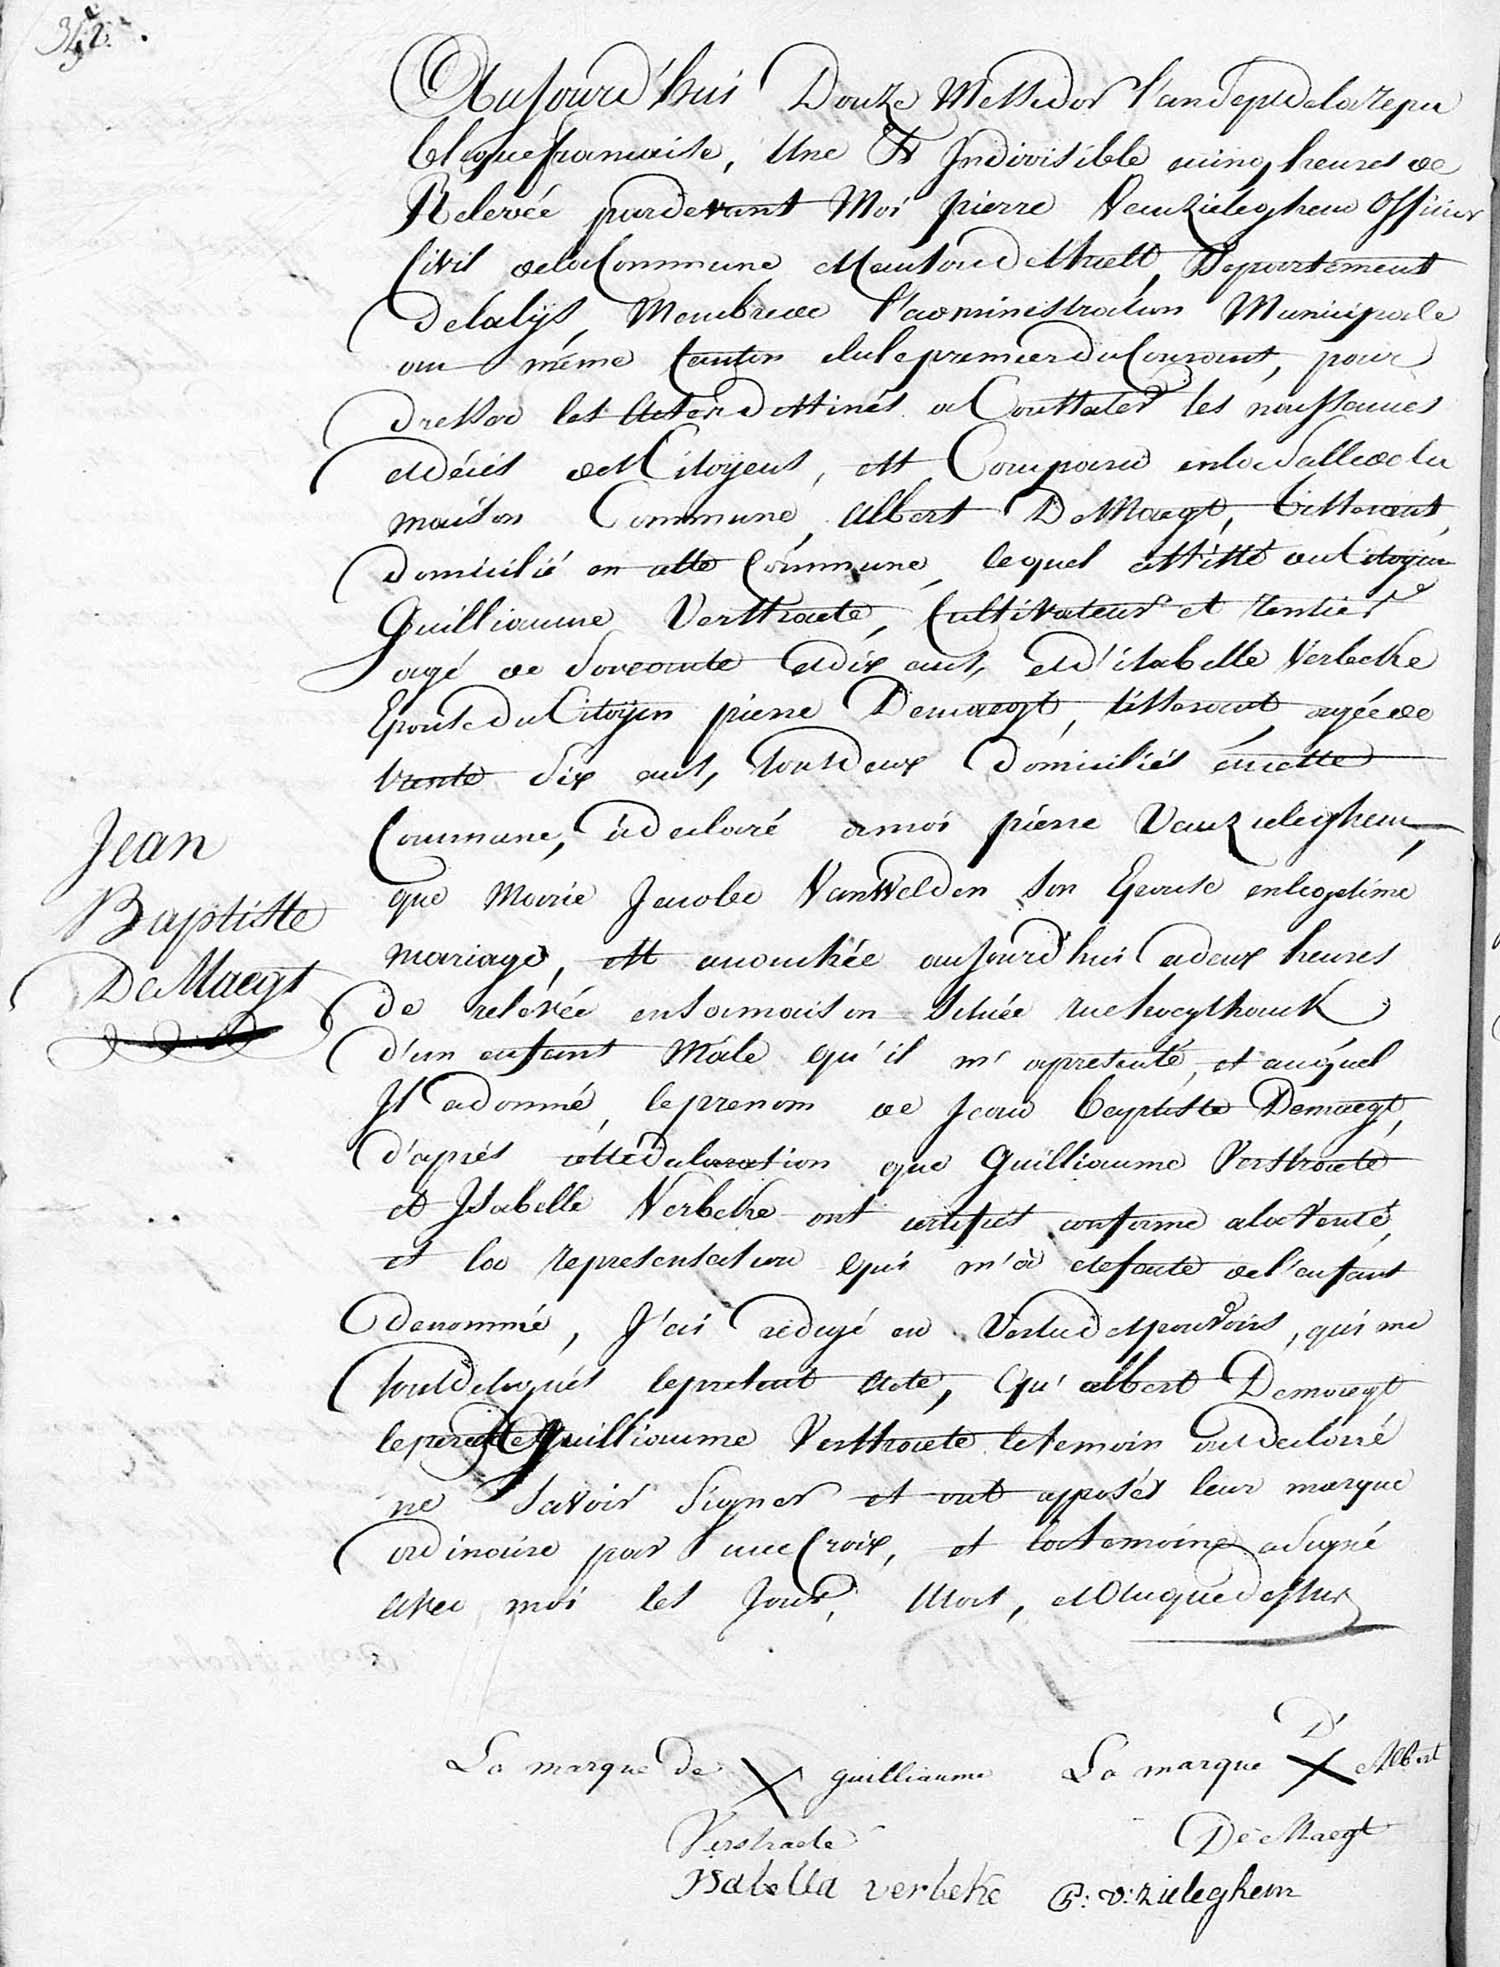 342.
Aujourd'hui Douze Messidor l'an Sept de la repu
blique francaise, Une Et Indivisible cinq heures de
Relevée pardevant Moi pierre Vanzieleghem Officier
Civil de la Commune Canton de Thielt, Departement
de la lijs, Membre de l'administration Municipale
du même Canton élu le premier du Courant, pour
dresser les Actes destinés a Constater les naissances
et décés des Citoÿens, est Comparu en la Salle de la
maison Commune, Albert De Maegt, tisserant,
domicilié en cette Commune, lequel assisté du Citoyen
Guilliaume Verstraete, Cultivateur et rentier
agé de soixante et dix ans, et d'isabelle Verbeke
Epouse du Citoÿen pierre Demaegt, tisserant, agée de
trente Six ans, tous deux domiciliés en cette
Commune, à declaré a moi pierre Vanzieleghem,
que Marie Jacobe VanWelden son Epouse en legetime
mariage, est accouchée aujourd'hui a deux heures
de relévée en sa maison Située rue
d'un enfant Mâle qu'il m'a presenté, et auquel
Il a donné, le prenom de Jean baptiste Demaegt,
d'aprés cétte declaration que Guilliaume Verstraete
et Isabelle Verbeke ont certifiés conforme a la Verité,
et la representation qui m'à etefaite de l'enfant
denommé, J'ai redigé en Vertu des pouvoirs, qui me
sont delegués le present Acte, Qu'albert Demaegt
le pere et Guilliaume Verstraete le temoin ont declaré
ne Savoir Signer et ont apposés leur marque
ordinaire par une Croix, et la temoine a Signé
avec moi les Jour, Mois, et An que dessus
Jean
Baptiste
De Maegt
La marque de X guilliaume
Verstraete
La marque D' X Albert
De Maegt
Isabella verbeke
P: v: zieleghem